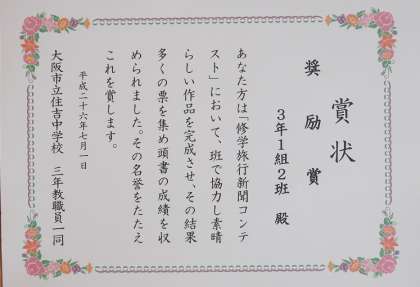 賞状
奨励賞
3年1組2班 殿
あなた方は「修学旅行新聞コンテ
スト」において、班で協力し素晴
らしい作品を完成させ、その結果
多くの票を集め頭書の成績を収
められました。その名誉をたたえ
これを賞します。
平成二十六年七月一日
大阪市立住吉中学校 三年教職員一同